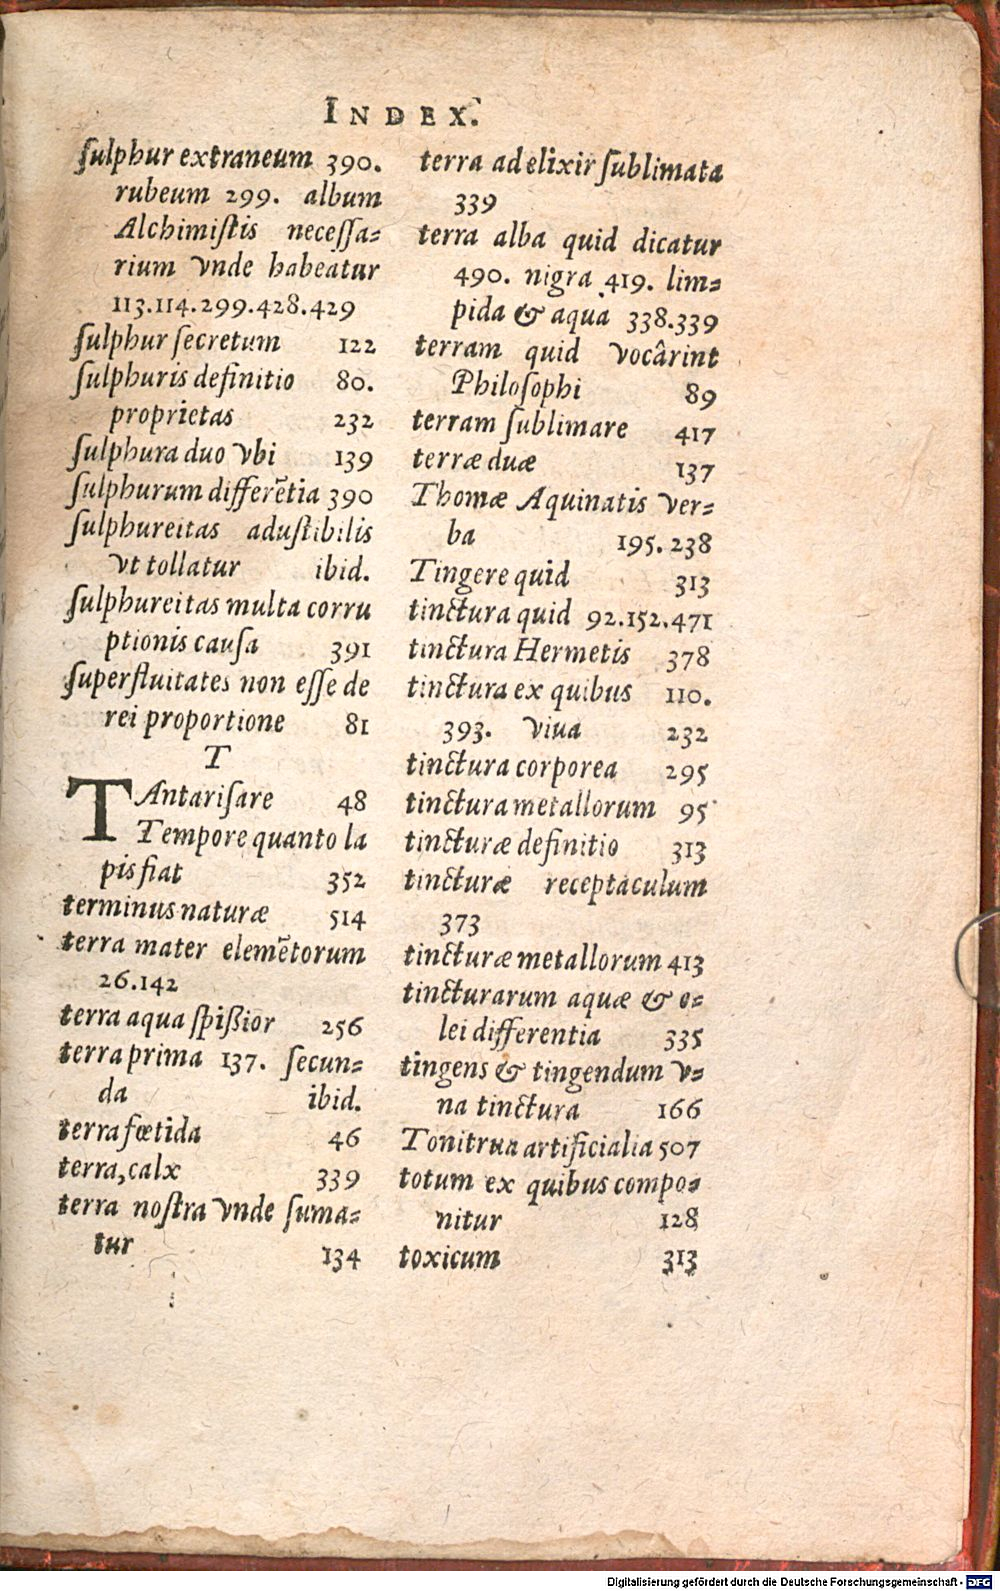 INDEX.
ſulphur extraneum 390.
rubeum 299. album
Alchimiſtis neceſſa=
rium vnde habeatur
113.114.299.428.429
ſulphur ſecretum 122
ſulphuris definitio 80.
proprietas 232
ſulphura duo vbi 139
ſulphurum differẽtia 390
ſulphureitas aduſtibilis
vt tollatur ibid.
ſulphureitas multa corru
ptionis cauſa 391
ſuperfluitates non eſſe de
rei proportione 81
T
TAntariſare 48
Tempore quanto la
pis fiat 352
terminus naturæ 514
terra mater elemẽtorum
26.142
terra aqua ſpißior 256
terra prima 137. ſecun=
da ibid.
terra fœtida 46
terra, calx 339
terra noſtra vnde ſuma=
tur 134
terra ad elixir ſublimata
339
terra alba quid dicatur
490. nigra 419. lim=
pida & aqua 338.339
terram quid vocârint
Philoſophi 89
terram ſublimare 417
terræ duæ 137
Thomæ Aquinatis ver=
ba 195.238
Tingere quid 313
tinctura quid 92.152.471
tinctura Hermetis 378
tinctura ex quibus 110.
393. viua 232
tinctura corporea 295
tinctura metallorum 95
tincturæ definitio 313
tincturæ receptaculum
373
tincturæ metallorum 413
tincturarum aquæ & o=
lei differentia 335
tingens & tingendum v=
na tinctura 166
Tonitrua artificialia 507
totum ex quibus compo=
nitur 128
toxicum 313
Digitalisierung gefördert durch die Deutsche Forschungsgemeinschaft - DFG